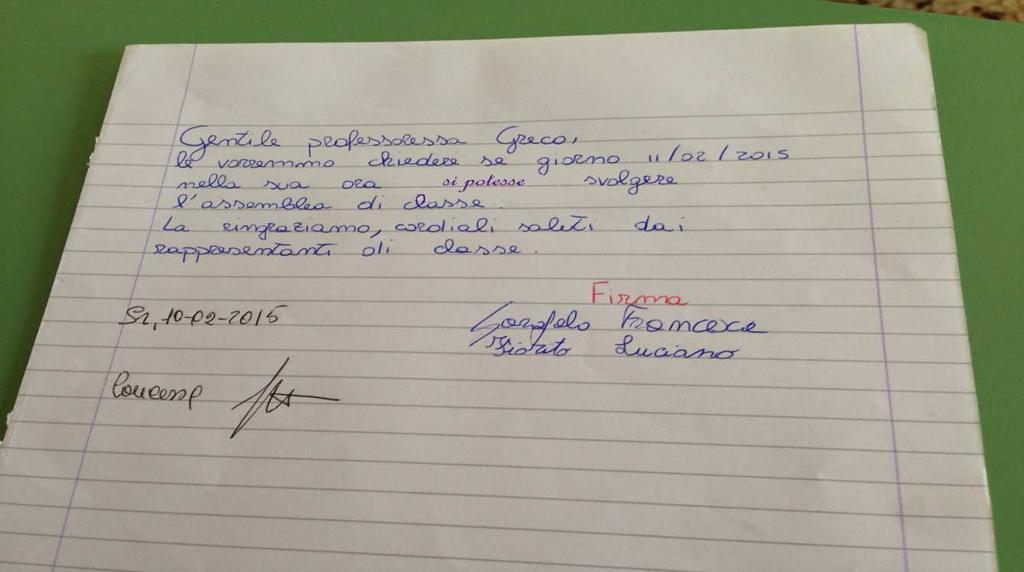 Gentile professoressa Greco,
le vorremmo chiedere se giorno 11/02/2015
nella sua ora si potesse svolgere
l'assemblea di classe.
La ringraziamo, cordiali saluti dai
rappresentanti di classe.
Firma
Francesca
Luciano
Sr, 10-02-2015